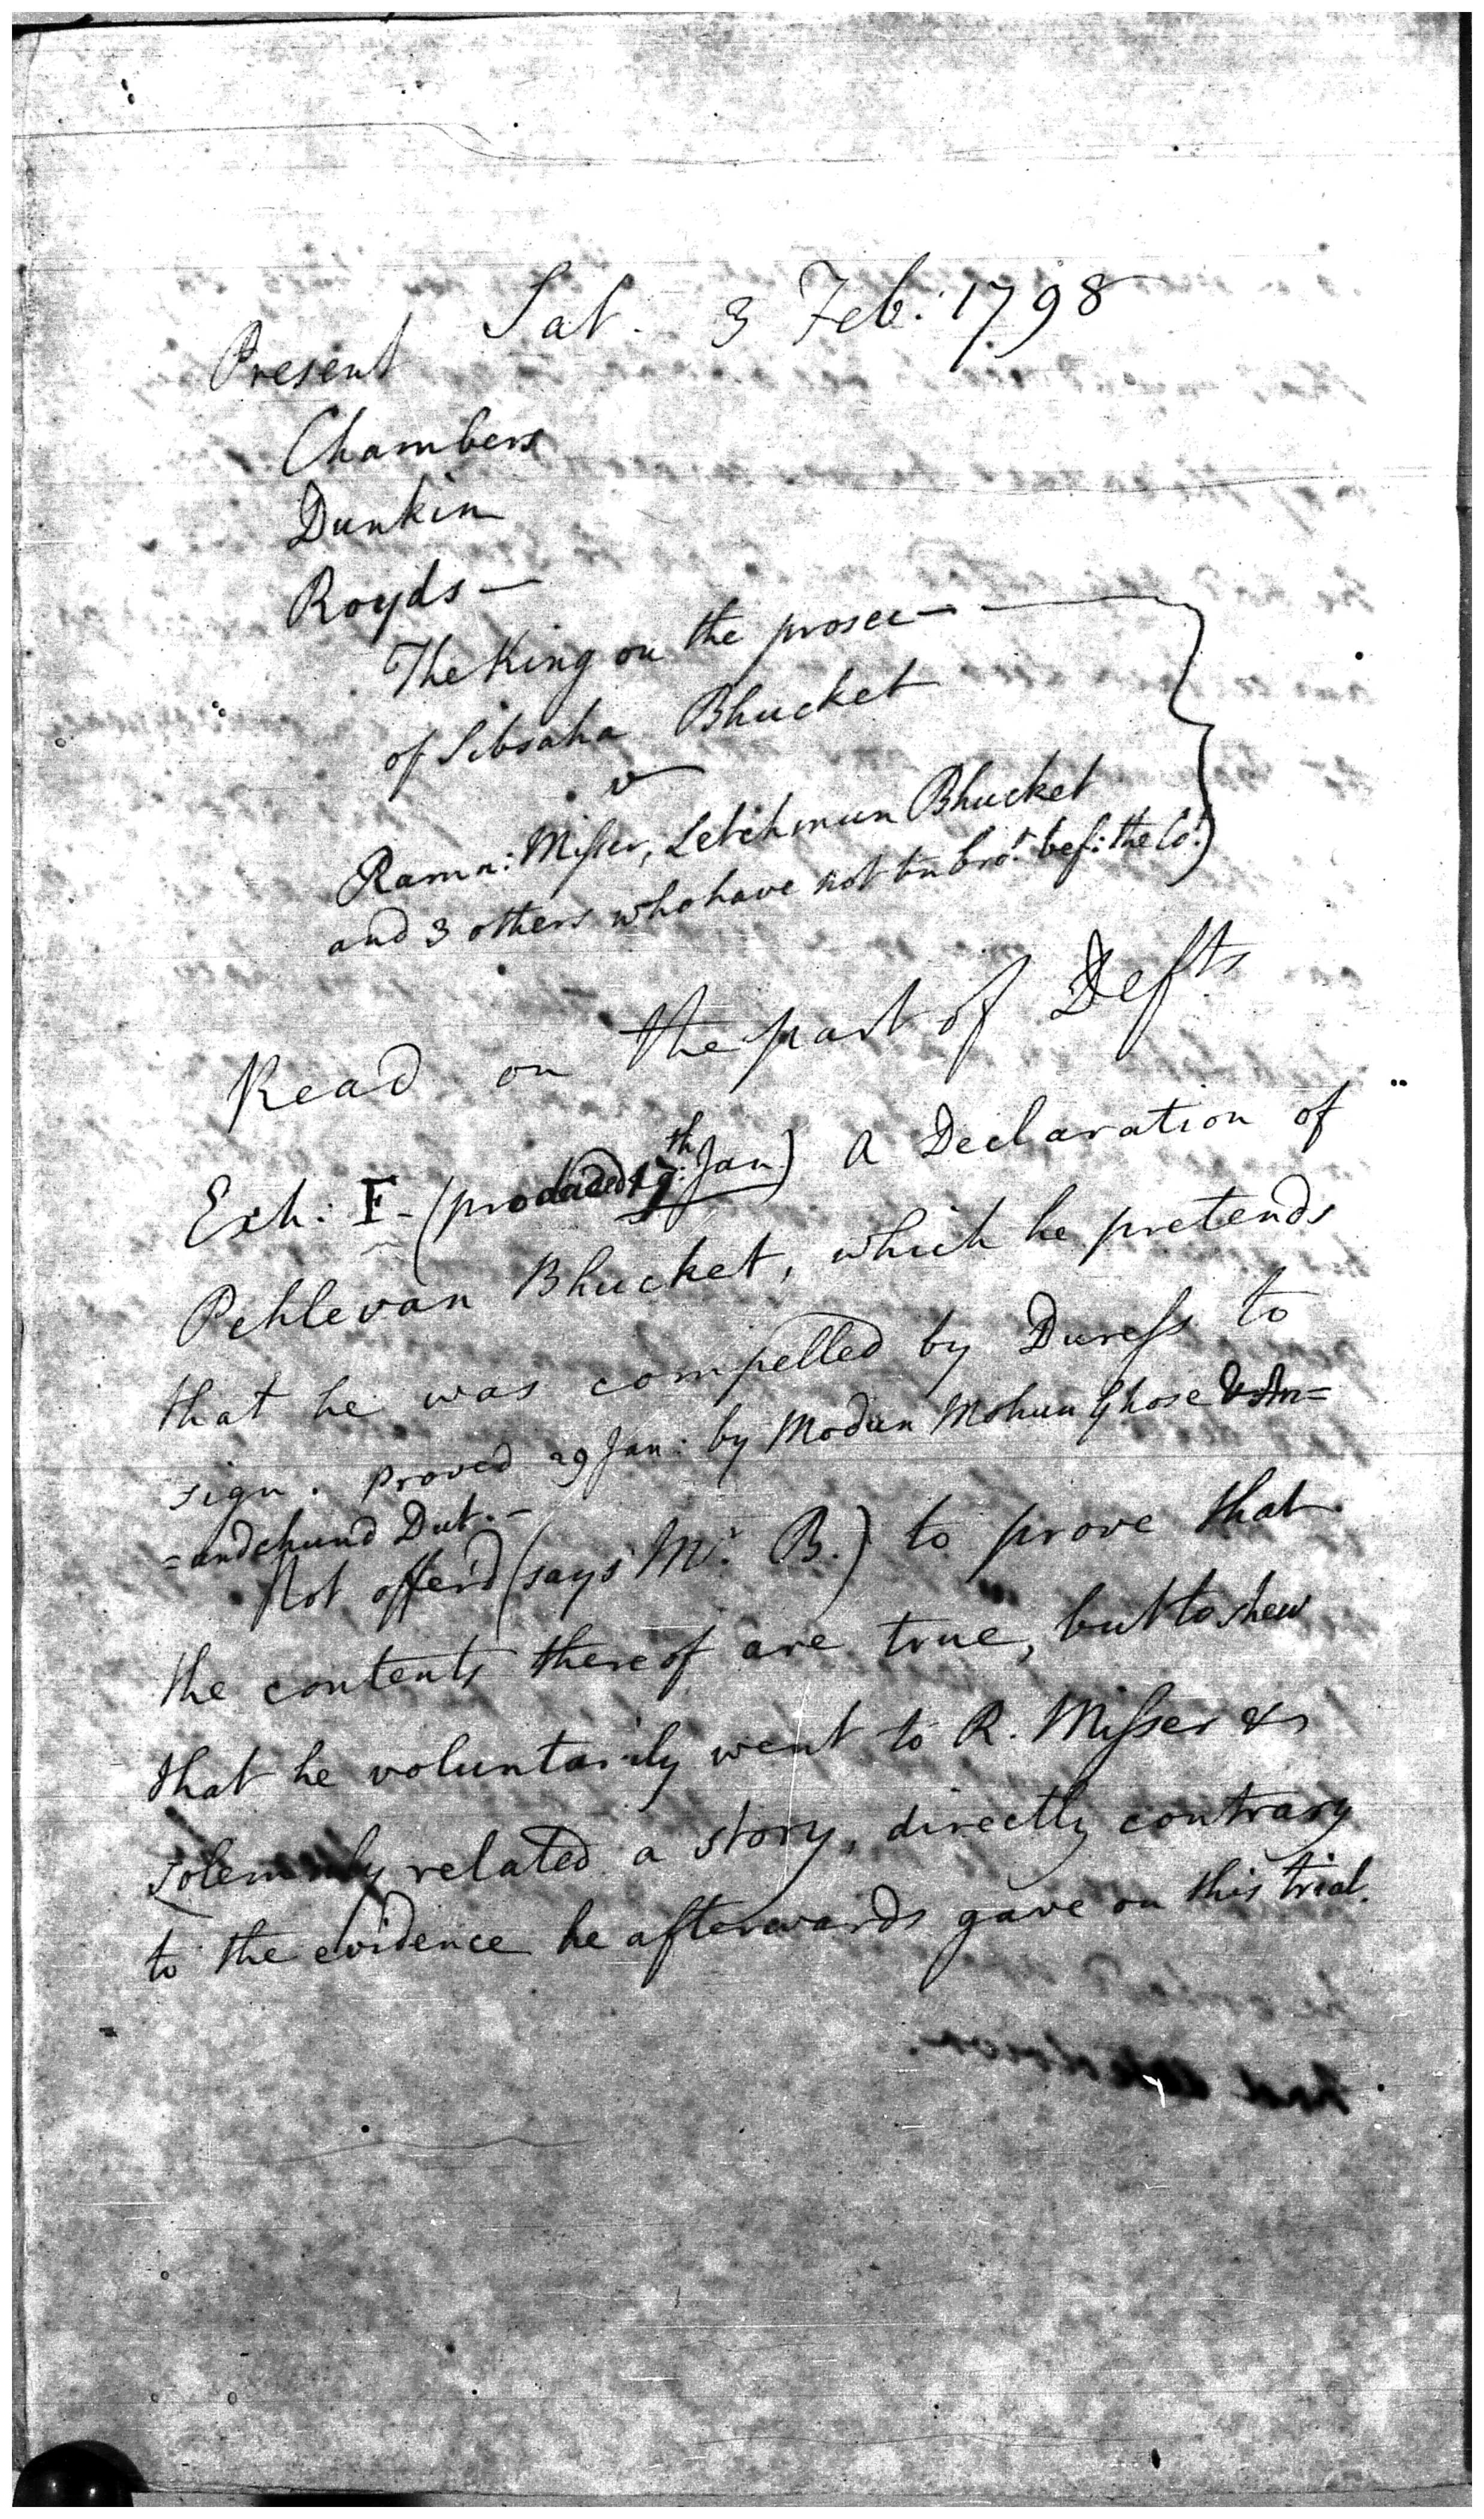 Sat. 3 Feb: 1798
Present
Chambers
Dunkin
Royds —
The King on the prosec—
of Sibsaha Bhucket
v
Ramn: Misser, Letchmun Bhucket
and 3 others who have not bn bro.t bef: the Co.t)
Read on the part of Defts
Exh: F - (produced 17th Jan) A Declaration of
Pehlevan Bhucket, which he pretends
that he was compelled by Duress to
sign. Proved 29 Jan: by Modun Mohun Ghose & An=
=andchund Dut. —
Not offer'd (says Mr. B.) to prove that
the contents thereof are true, but to shew
that he voluntarily went to R. Misser &
solemnly related a story, directly contrary
to the evidence he afterwards gave on this trial.